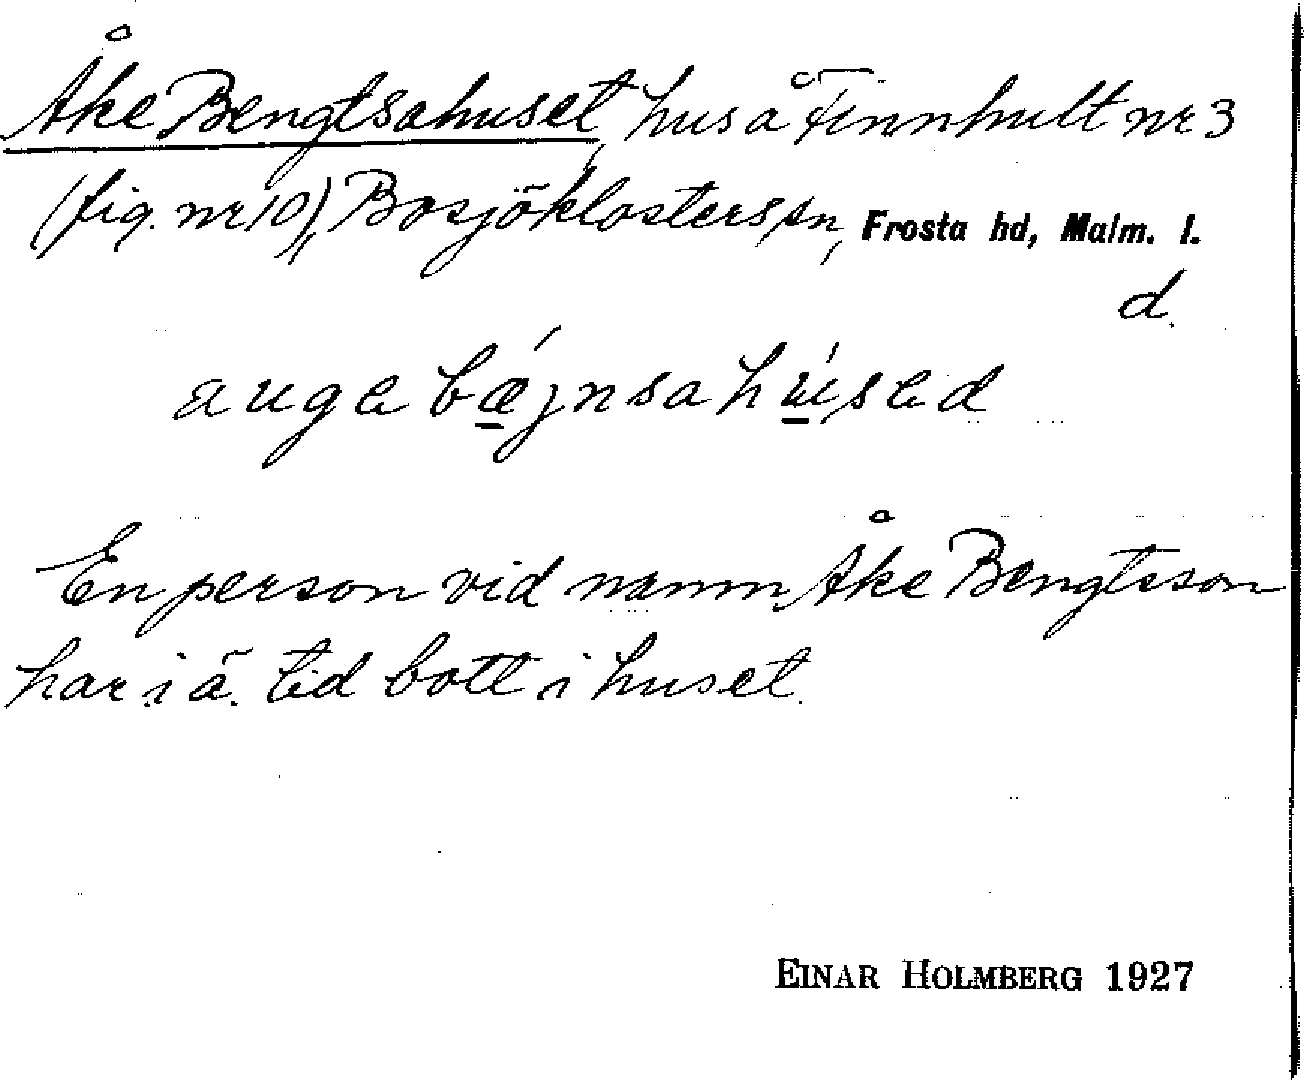 Åke Bengtsahuset, hus å Finnhult nr 3
(fig. nr 10), Bosjöklosters sn, Frosta hd, Malm. l.
d.
auge bǽjnsahúsed
En person vid namn Åke Bengtsson
har i ä. tid bott i huset.
EINAR HOLMBERG 1927